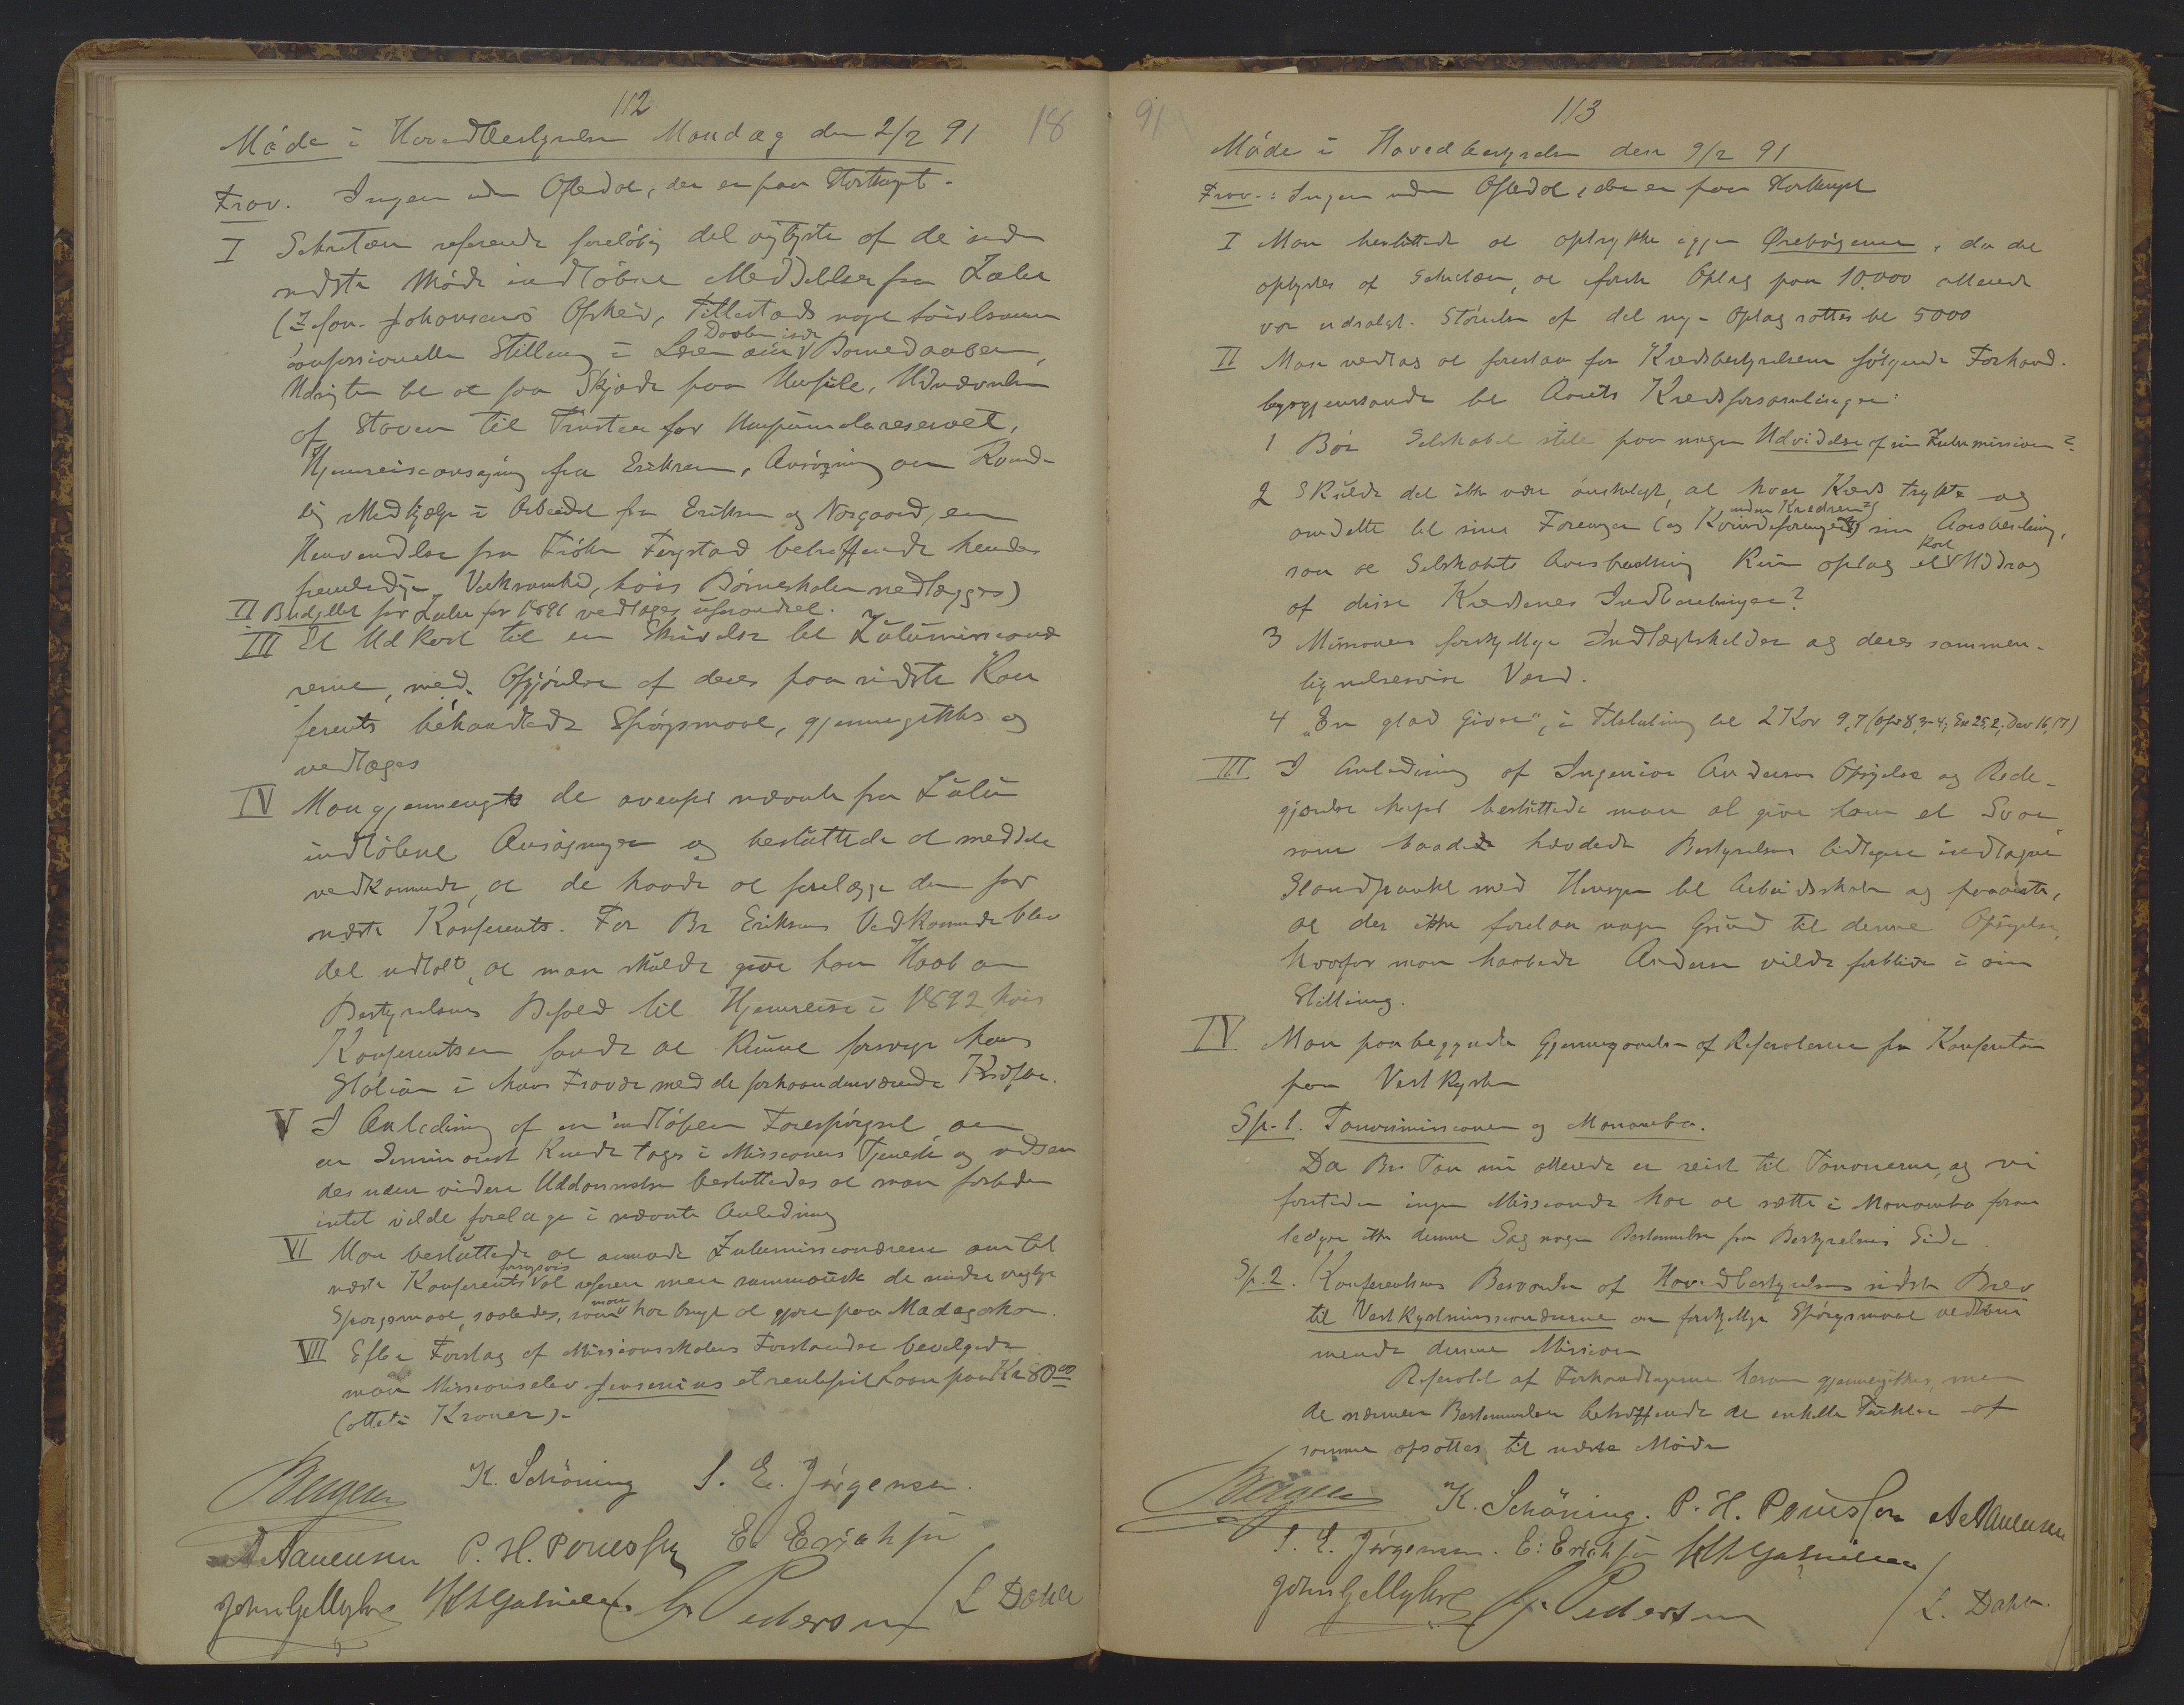 112
18
Møde i Hovedbestyrelsen Mandag den 2/2 91
Frav. Ingen uden Oftedal, der er paa Storthinget.
I Sekretæren refererede foreløbig det vigtigste af de siden
sidste Møde indløbne Meddelelser fra Zulu
Johansens Afsked, Tillestads noget tvivlsomme
Daaben isde
confessionelle Stilling i Læren om Barnedaaben,
Udsigten til at faa Skjøde paa Umfule, Udnævnelse
af Staven til Trustee for Umpumuloreservet,
Hjemreiseansøgning fra Eriksen, Ansøgning om Kvinde-
lig Medhjælp i Arbeidet fra Eriksen og Norgaard, en
Henvendelse fra Frøken Fergstad betræffende hendes
fremtidige Virksomhed, hvis Børneskolen nedlægges)
II Budgettet for Zulu for 1891 vedtages uforandret.
III Et Udkast til en Skrivelse til Zulumissionæ
rerne, med Afgjørelse af deres paa sidste Kon
ferents behandlede Spørgsmaal, gjennemgikkes og
vedtages
IV Man gjennemgik de ovenfor nævnte fra Zulu
indløbne Ansøgninger og besluttede at meddele
vedkommende, at de havde at forelægge dem for
næste Konferents. For Br Eriksens Vedkommende blev
det udtalt, at man skulde give ham Haab om
Bestyrelsens Bifald til Hjemreise i 1892, hvis
Konferentsen fandt at kunne forsørge hans
Station i hans Fravær med de forhaandenværende Kræfter.
V I Anledning af en indløben Forespørgsel om
en Seminarist kunde tages i Missionens Tjeneste og udsen
des uden videre Uddannelse besluttedes at man fortiden
intet vilde foretage i nævnte Anledning
VI Man besluttede at anmode Zulumissionærerne om til
forsøgsvis
næste Konferents at referere mere summarisk de mindre vigtige
man
Spørgsmaal, saaledes, som har brugt at gjøre paa Madagaskar.
VII Efter Forslag af Missionsskolens Forstander bevilgede
man Missionselev Jensenius et rentefrit Laan paa Kr 80.00
(otteti Kroner).
Borgen K. Schöning S. E. Jørgensen.
A Aanensen P. H. Poulsson E. Erichsen
John Gjellylund Gabrielsen G. Pedersen / L Dahle
91
113
Møde i Hovedbestyrelsen den 9/2 91
Frav.: Ingen uden Oftedal, der er paa Storthinget
I Man besluttede at optrykke igjen Ørebøgerne, da det
oplystes af Sekretæren, at første Oplag paa 10.000 allerede
var udsolgt. Størrelsen af det nye Oplag sættes til 5000
II Man vedtog at foreslaa for Kredsbestyrelserne følgende Forhand-
lingsgjenstande til Aarets Kredsforsamlinger:
1 Bør Selskabet stile paa nogen Udvidelse af sin Zulumission?
2 Skulde det ikke være ønskeligt, at hver Kreds trykte og
inden Kredsen
omdelte til sine Foreninger (og Kvindeforeninger) sin Aarsberetning,
kort
saa at Selskabets Aarsberetning kun optog et Uddrag
af disse Kredsenes Indberetninger?
3 Missionens forskjellige Indtægtskilder og deres sammen-
ligningsvise Værd.
4 „En glad Giver“, i Tilslutning til 2 Kor 9,7 (cfr 8,3-4; Ex 25,2; Deu 16,17)
III I Anledning af Ingeniør Andersens Opsigelse og Rede-
gjørelse herfor besluttede man at give ham et Svar
som baade hævdede Bestyrelsens tidligere indtagne
Standpunkt med Hensyn til Arbeidsskolen og paaviste,
at der ikke forelaa nogen Grund til denne Opsigelse,
hvorfor man haabede Andersen vilde forblive i sin
Stilling.
IV Man paabegyndte Gjennemgaaelsen af Referaterne fra Konferentsen
paa Vestkysten
Sp. 1. Tanosimissionen og Manombo.
Da Br. Tou nu allerede er reist til Tanosierne, og vi
fortiden ingen Missionær har at sætte i Manombo foran
lediger ikke denne Sag nogen Bestemmelse fra Bestyrelsens Side
Sp. 2. Konferentsens Besvarelse af Hovedbestyrelsens sidste Brev
til Vestkystmissionærerne om forskjellige Spørgsmaal vedkom
mende denne Mission
Referatet af Forhandlingerne herom gjennemgikkes, men
de nærmere Bestemmelser betræffende de enkelte Punkter af
samme opsattes til næste Møde
Borgen K. Schöning. P. H. Poulsson A Aanensen
S. E. Jørgensen. E. Erichsen Gabrielsen
John Gjellylund G. Pedersen / L. Dahle.